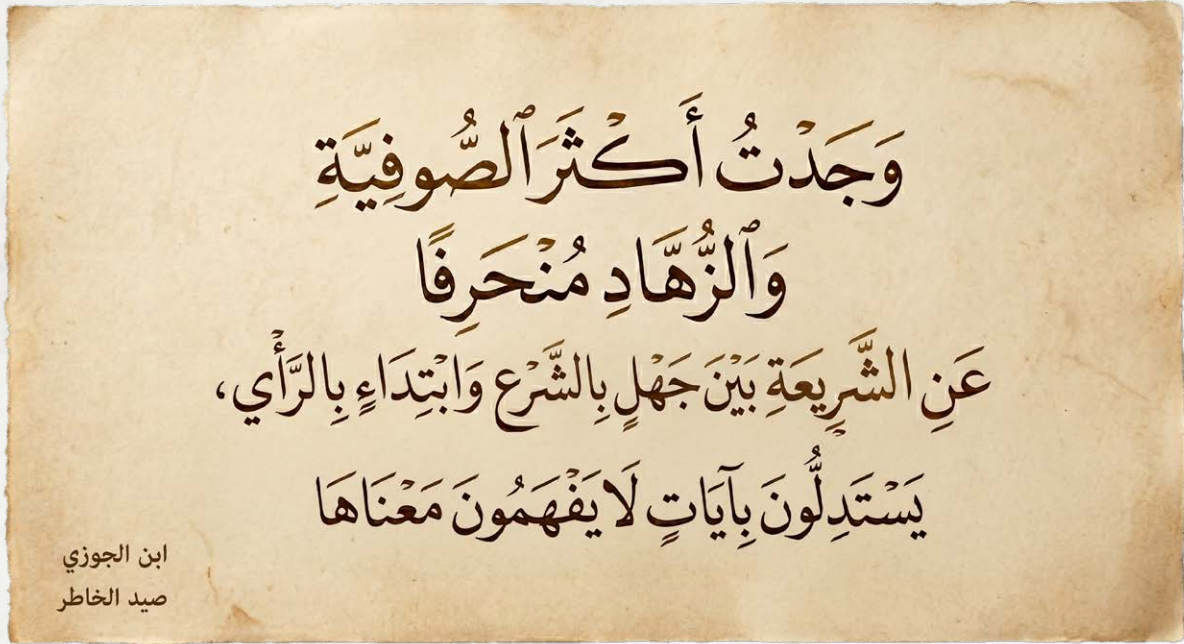 وَجَدْتُ أَكْثَرَ ٱلصُّوفِيَّةِ
وَٱلزُّهَّادِ مُنْحَرِفًا
عَنِ الشَّرِيعَةِ بَيْنَ جَهْلٍ بِالشَّرْعِ وَابْتِدَاءٍ بِالرَّأْيِ،
يَسْتَدِلُّونَ بِآيَاتٍ لَا يَفْهَمُونَ مَعْنَاهَا
ابن الجوزي
صيد الخاطر